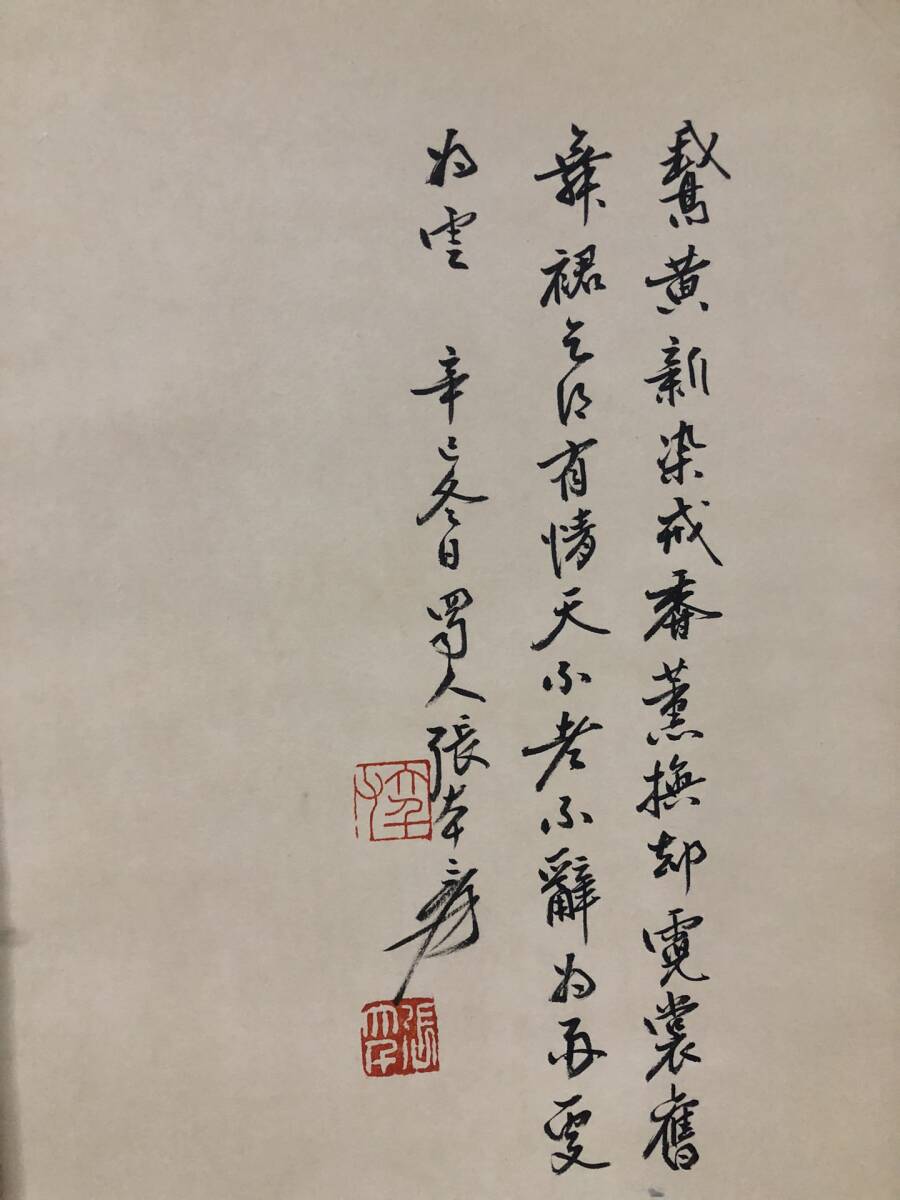 鵞黄新染戒香薰撫却霓裳舊
舞裙乞得有情天不老不辭為雨更
為雲 辛巳冬日蜀人張大千爰
張大千